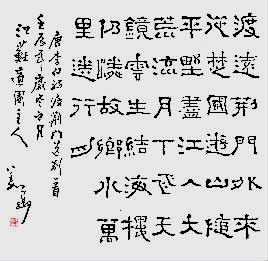 渡遠荊門外來
從楚國遊山隨
平野盡江入大
荒流月下飛天
鏡雲生結海樓
仍憐故鄉水萬
里送行舟
唐李白詩渡荊門送別一首
壬辰歲冬月
江蘇漢園主人